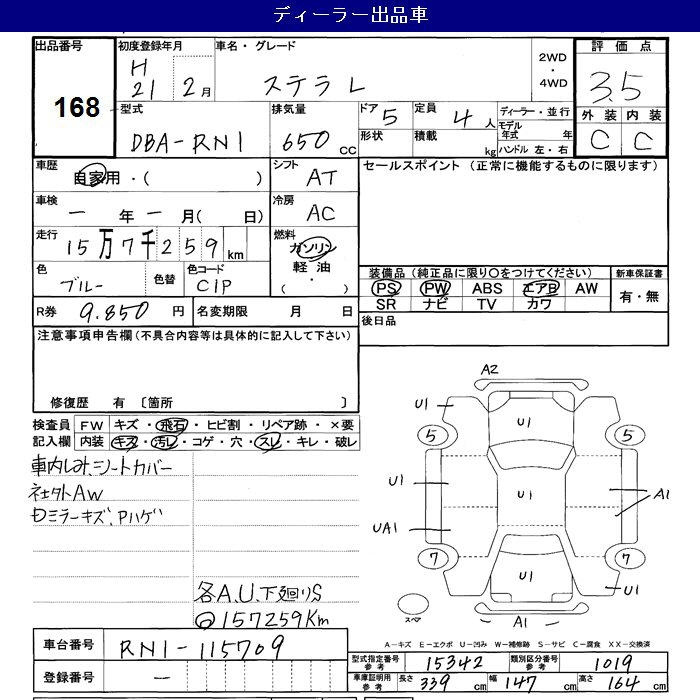 ディーラー出品車
出品番号 初度登録年月 車名・グレード 評価点
168
H 21 2月 ステラ L 2WD・4WD 3.5
型式 排気量 ドア 5 定員 4人 ディーラー・並行 外装 内装
DBA-RN1 650cc 形状 積載 kg モデル年式 年 C C
ハンドル 左・右
車歴 自家用・( ) シフト AT セールスポイント (正常に機能するものに限ります)
車検 ー年ー月( 日) 冷房 AC
走行 15万7千259km 燃料 ガソリン 軽油 ( ・ )
色 ブルー 色替 色コード C1P
装備品 (純正品に限り○をつけてください) 新車保証書
PS PW ABS エアB AW 有・無
SR ナビ TV カワ
R券 9.850円 名変期限 月 日 後日品
注意事項申告欄(不具合内容等は具体的に記入して下さい)
修復歴 有 〔箇所 〕
検査員 FW キズ・飛石・ヒビ割・リペア跡・×要
記入欄 内装 キズ・汚レ・コゲ・穴・スレ・キレ・破レ
車内しみ、シートカバー
社外AW
ミラーキズ、Pハゲ
各A.U.下廻りS
157259Km
A2
U1 U1
5 5
U1 U1 A1
UA1
7 7
U1 U1
スペア A1
A－キズ E－エクボ U－凹み W－補修跡 S－サビ C－腐食 XX－交換済
車台番号 RN1-115709
登録番号 ー
型式指定番号 参考 15342 類別区分番号 参考 1019
車庫証明用 参考 長さ 339cm 幅 147cm 高さ 164cm